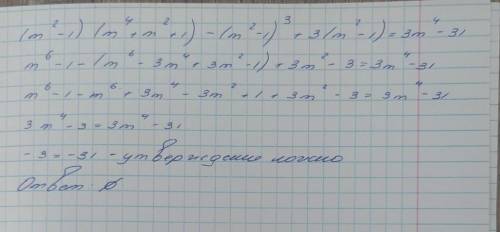 (m² - 1) (m⁴ + m² + 1) - (m² - 1)³ + 3(m² - 1) = 3m⁴ - 31
m⁶ - 1 - (m⁶ - 3m⁴ + 3m² - 1) + 3m² - 3 = 3m⁴ - 31
m⁶ - 1 - m⁶ + 3m⁴ - 3m² + 1 + 3m² - 3 = 3m⁴ - 31
3m⁴ - 3 = 3m⁴ - 31
-3 = -31 - утверждение ложно
Ответ ∅